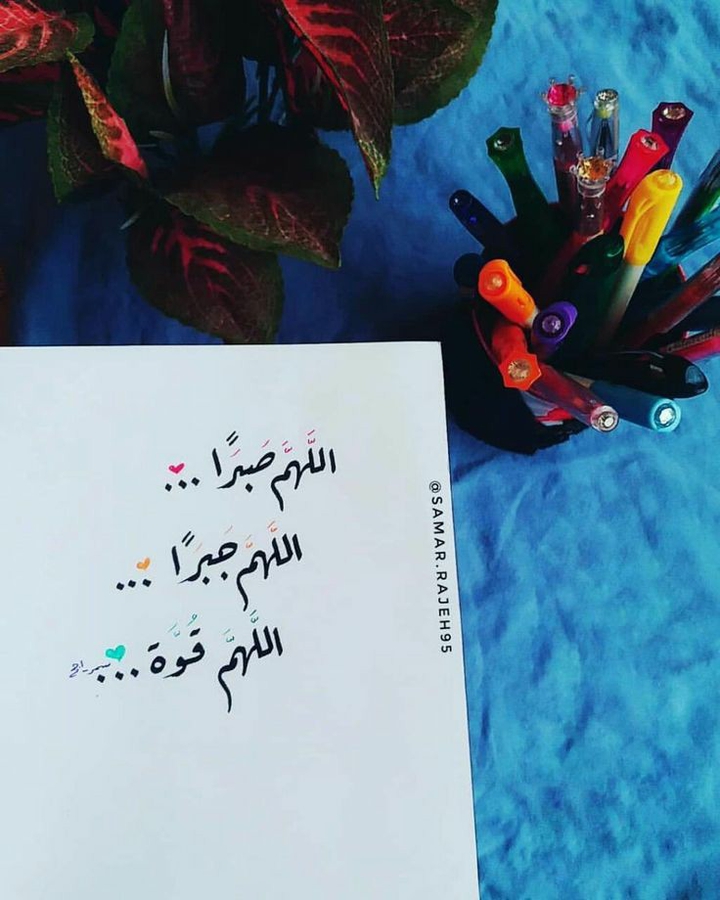 اللَّهُمَّ صَبرًا ...
اللَّهُمَّ جَبرًا ...
اللَّهُمَّ قُوَّة ...
سمر راجح
@SAMAR.RAJEH95